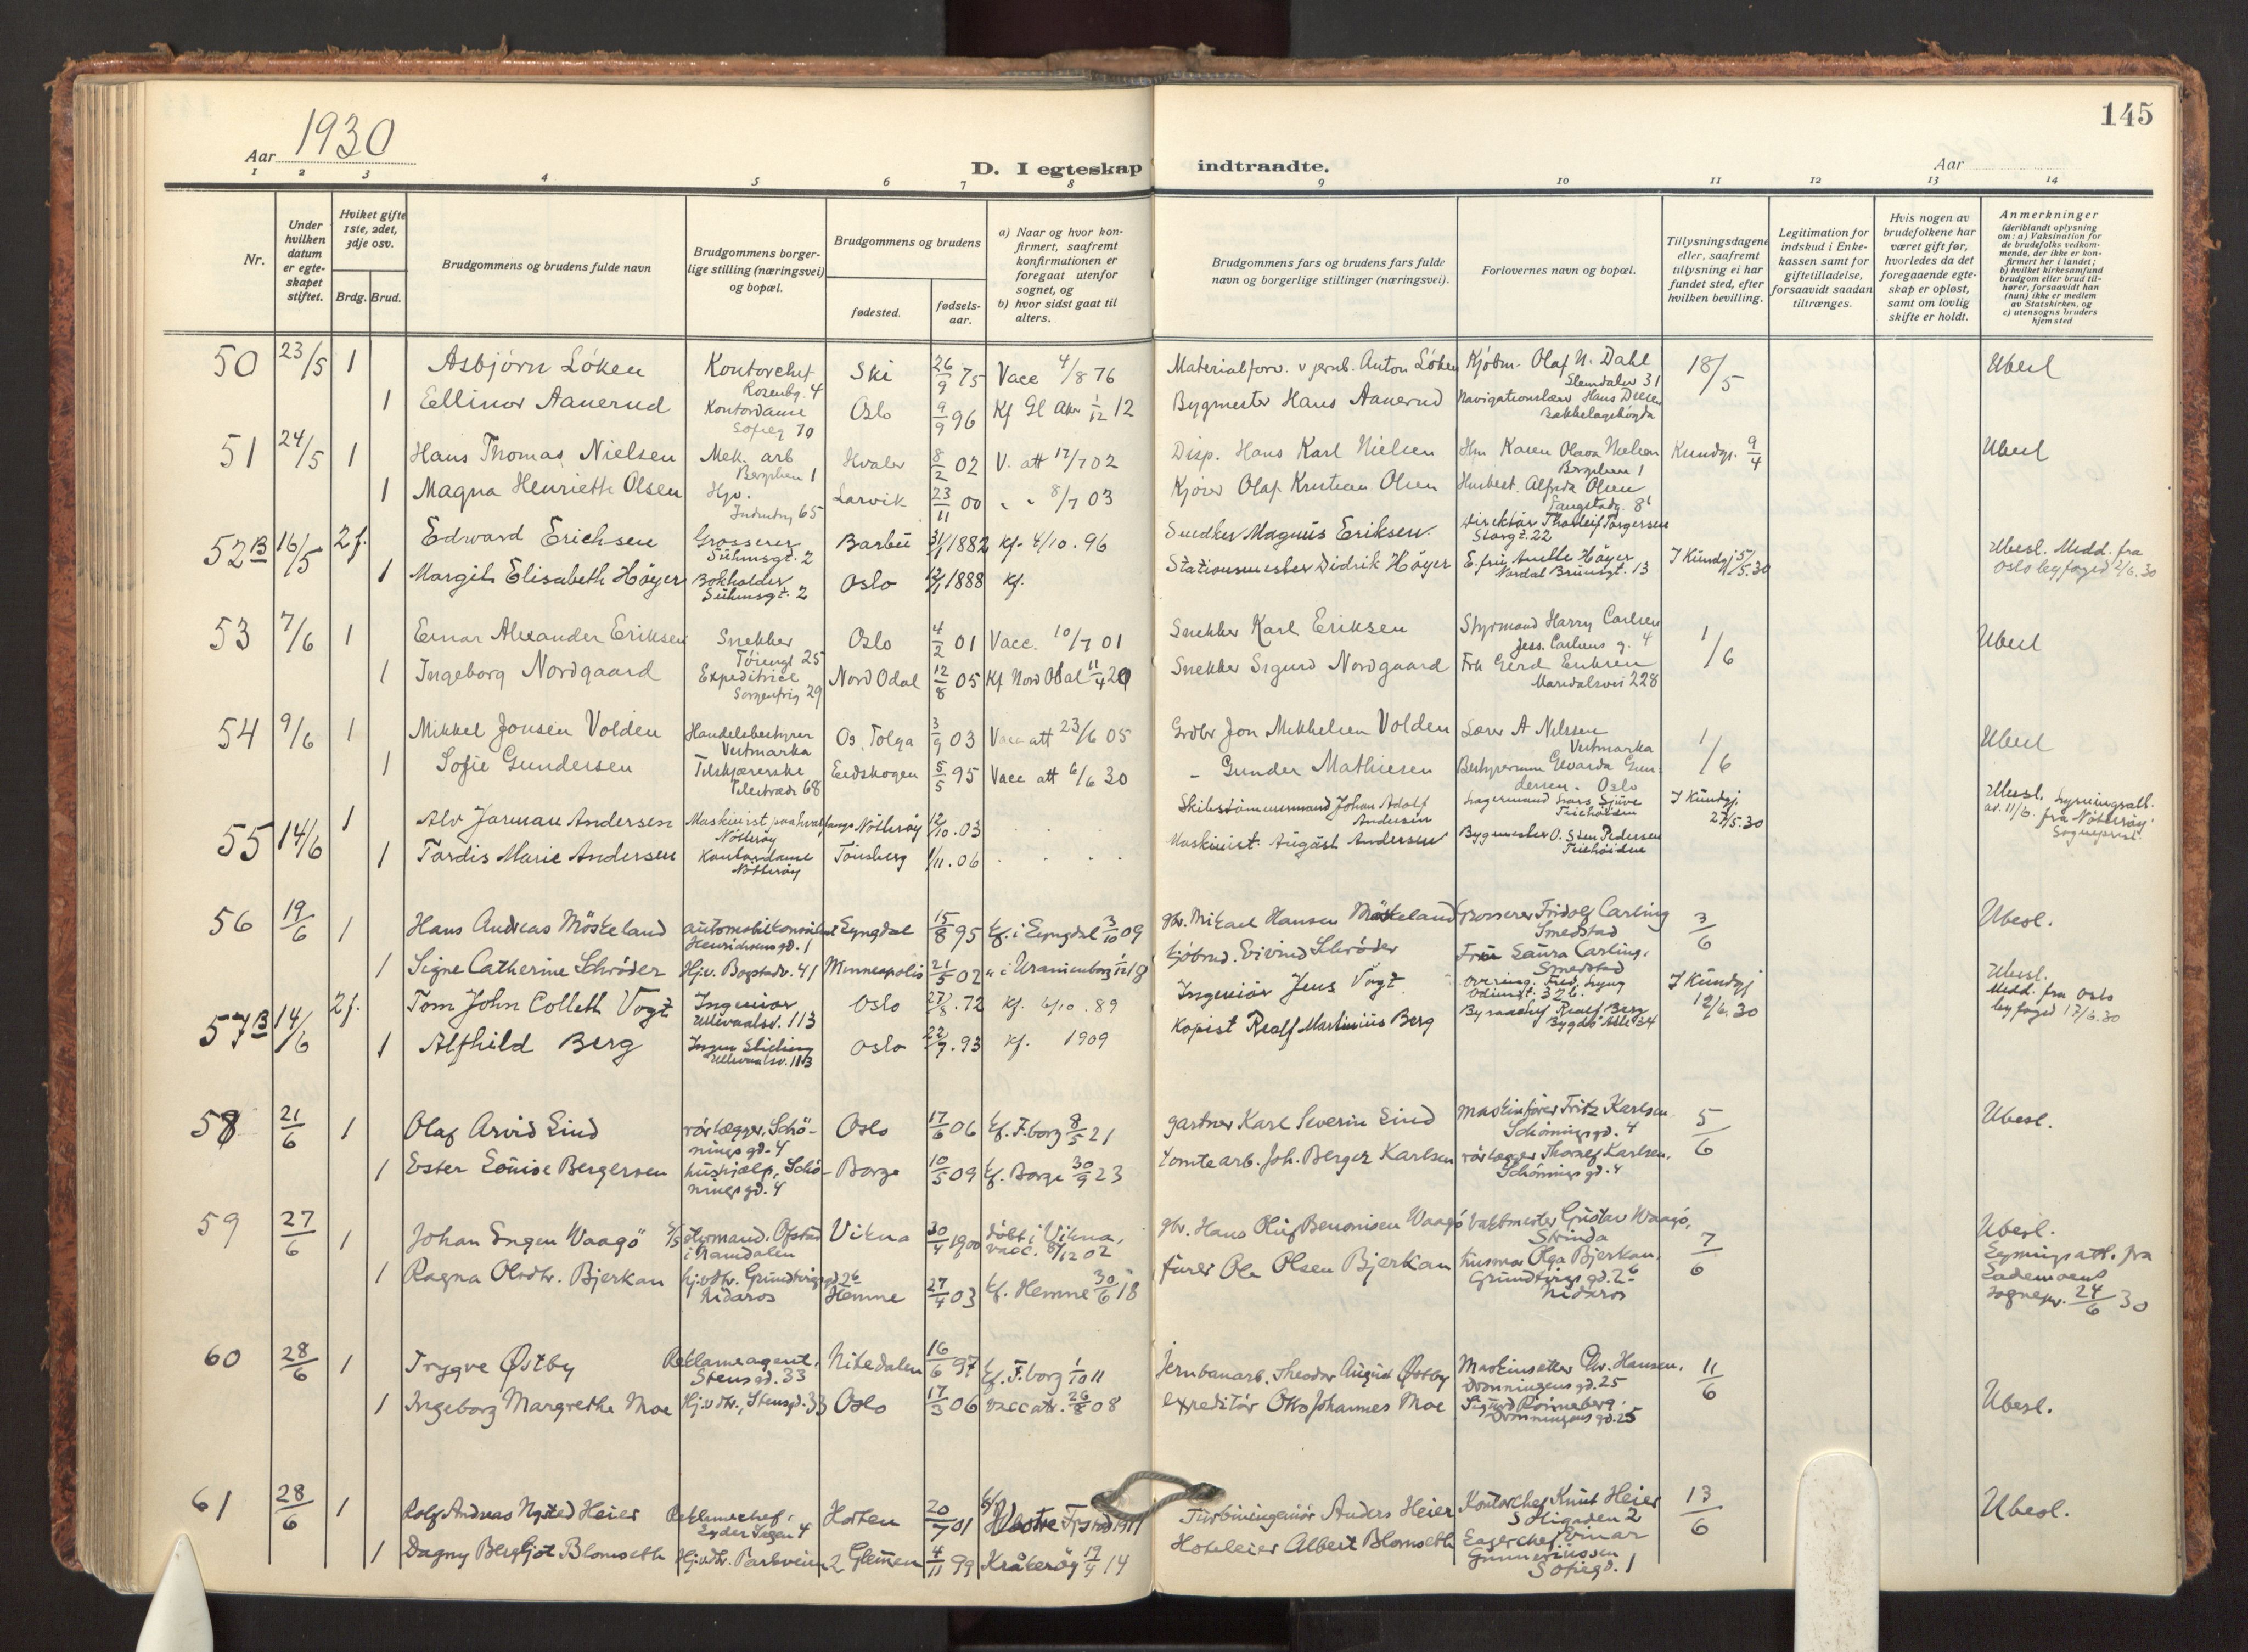 145
Aar 1930
D. I egteskap indtraadte.
Aar
1 2 3 4 5 6 7 8 9 10 11 12 13 14
Nr.
Under hvilken datum er egteskapet stiftet.
Hviket gifte 1ste, 2det, 3dje osv.
Brdg. Brud.
Brudgommens og brudens fulde navn
Brudgommens borgerlige stilling (næringsvei) og bopæl.
Brudgommens og brudens
fødested.
fødsels-aar.
a) Naar og hvor konfirmert, saafremt konfirmationen er foregaat utenfor sognet, og
b) hvor sidst gaat til alters.
Brudgommens fars og brudens fars fulde navn og borgerlige stillinger (næringsvei).
Forlovernes navn og bopæl.
Tillysningsdagene eller, saafremt tillysning ei har fundet sted, efter hvilken bevilling.
Legitimation for indskud i Enkekassen samt for giftetilladelse, forsaavidt saadan tiltrænges.
Hvis nogen av brudefolkene har været gift før, hvorledes da det foregaaende egteskap er opløst, samt om lovlig skifte er holdt.
Anmerkninger (deriblandt oplysning om: a) Vaksination for de brudefolks vedkommende, der ikke er konfirmert her i landet; b) hvilket kirkesamfund brudgom eller brud tilhører, forsaavidt han (hun) ikke er medlem av Statskirken, og c) utensogns bruders hjemsted
50 23/5 1 Asbjörn Löken Kontorchef Ski 26/9 75 Vacc 4/8 76 Materialforv. v jernb. Anton Löken Kjöbm. Olaf N. Dahl 18/5 Ubesl
Rosenbg. 4 Slemdalsv 31
1 Ellinor Aanerud Kontordame Oslo 9/9 96 Kf Gl Aker 1/12 12 Bygmester Hans Aanerud Navigationslærer Hans
Sofieg 70 Bækkelagshögda
51 24/5 1 Hans Thomas Nielsen Mek. arb Hvaler 8/2 02 V. att 17/7 02 Disp. Hans Karl Nielsen Hm Karen Olava Nielsen Kundgj. 9/4 Ubesl
1 Magna Henriette Olsen Hjv. Larvik 23/11 00 " " 8/7 03 Kjörer Olaf Kristian Olsen Husbest. Alfrida Olsen
65
52 B 16/5 2 f. Edward Erichsen Grosserer Barbu 1882 kf. 4/10. 96 Snedker Magnus Eriksen. Direktör Thorleif Torgersen
Suhmsgt. 2 Storgt. 22
1 Margith Elisabeth Höyer Bokholder Oslo 1888 kf. Stationsmester Didrik Höyer E. fru Anette Höyer I Kundgj 5/5.30 Ubesl. Medd. fra
Suhmsgt. 2 Nordal Brunsgt. 13 Oslo byfoged 2/6.30
53 7/6 1 Einar Alexander Eriksen Snekker Oslo 4/2 01 Vacc. 10/7 01 Snekker Karl Eriksen Styrmand Harry Carlsen 1/6 Ubesl
25 Jess. Carlsens g. 4
1 Ingeborg Nordgaard Expeditrice Nord Odal 12/8 05 Kf Nord Odal 11/4 20 Snekker Sigurd Nordgaard Frk Gerd Eriksen
Sorgenfrig 29 Maridalsvei 228
54 9/6 1 Mikkel Jonsen Volden Handelsbestyrer Os, Tolga 3/9 03 Vacc att 23/6 05 Grdbr Jon Mikkelsen Volden Lærer A Nilssen 1/6 Ubesl
Vestmarka Vestmarka
1 Sofie Gundersen Tilskjærerske Eidskogen 5/5 95 Vacc att 6/6 30 – Gunder Mathiesen Bestyrerinne Gun-
68 dersen. Oslo
55 14/6 1 Alv Jarman Andersen Maskinist paa hvalfangs Nötteröy 12/10. 03 Skibstömmermand Johan Adolf Lagermand Lars I Kundgj. Ubesl. Lysningsatt.
Nötteröy Andersen 27/5.30 av. 11/6. fra Nötteröy
1 Tordis Marie Andersen Kontordame Tönsberg 1/11. 06 Maskinist August Andersen Bygmester O. Sten Pedersen Sogneprest.
Nötteröy
56 19/6 1 Hans Andreas Möskeland automobilkonsulent Lyngdal 15/8 95 kf. i Lyngdal 3/10 09 gbr. Mikael Hansen Möskeland Grosserer Fridolf Carling 3/6 Ubesl.
Henrichsensgd. 1 Smedstad
1 Signe Catherine Schröder Hjv. Bogstadv. 41 Minneapolis 21/5 02 " i Uranienborg 1/12 18 kjöbmd. Eivind Schröder Fru Laura Carling,
Smedstad
57 B 14/6 2 f. Tom John Collett Vogt Ingeniör Oslo 27/8. 72 kf. 6/10. 89 Ingeniör Jens Vogt. I Kundgj Ubesl.
Ullevaalsv. 113 12/6.30 Medd. fra Oslo
1 Alfhild Berg Ingen Stilling Oslo 22/7. 93 kf. 1909 Kopist Realf Martinius Berg Byraachef Realf Berg byfoged 17/6.30
Ullevaalsv. 113 Bygdö Allé 34
58 21/6 1 Olaf Arvid Lind rörlægger, Schö- Oslo 17/6 06 kf. F.borg 8/5 21 gartner Karl Severin Lind Maskinförer Fritz Karlsen 5/6 Ubesl.
nings gd. 4 Schönings gd. 4
1 Ester Louise Bergersen hushjælp, Schö- Borge 10/5 09 kf. Borge 30/9 23 Tomtearb. Joh. Berger Karlsen rörlægger Thoralf Karlsen,
nings gd. 4 Schönings gd. 4
59 27/6 1 Johan Engen Waagö styrmand. Ofstad Vikna 30/4 1900 döbt i Vikna, gbr. Hans Oluf Benonisen Waagö vaktmester Gustav Waagö, 7/6 Ubesl.
i Namdalen vacc. 8/12 02 Strinda Lysnings att. fra
1 Ragna Olsdtr. Bjerkan hj.v.dtr. Grundtvigs gd 26 Hemne 27/4 03 kf. Hemne 30/6 18 furer Ole Olsen Bjerkan husmor Olga Bjerkan, Lademoens
Nidaros Grundtvigs gd. 26 sognepr. 24/6 30
Nidaros
60 28/6 1 Trygve Østby Reklameagent, Nitedalen 16/6 97 kf. F.borg 1/10 11 Jernbanearb. Theodor August Østby Maskinsetter Chr. Hansen, 11/6
Stensgd. 33 Dronningens gd. 25
1 Ingeborg Margrethe Moe Hj.v.dtr., Stensgd. 33 Oslo 17/3 06 vacc att. 26/8 08 expeditör Otto Johannes Moe Sigurd Rönneberg, Ubesl.
Dronningens gd. 25
61 28/6 1 Rolf Andreas Nysted Heier Reklamechef, Horten 20/7 01 Turbiningeniör Anders Heier Kontorchef Knut Heier 13/6 Ubesl.
Lyder Sagen 4 Soligaden 2
1 Dagny Bergljot Blomseth Hj.v.dtr. Parkveien 2 Glemmen 4/11 99 Kråkeröy 19/4 14 Hoteleier Albert Blomseth Lagerchef Einar
Gunneriussen
Sofiegd. 1